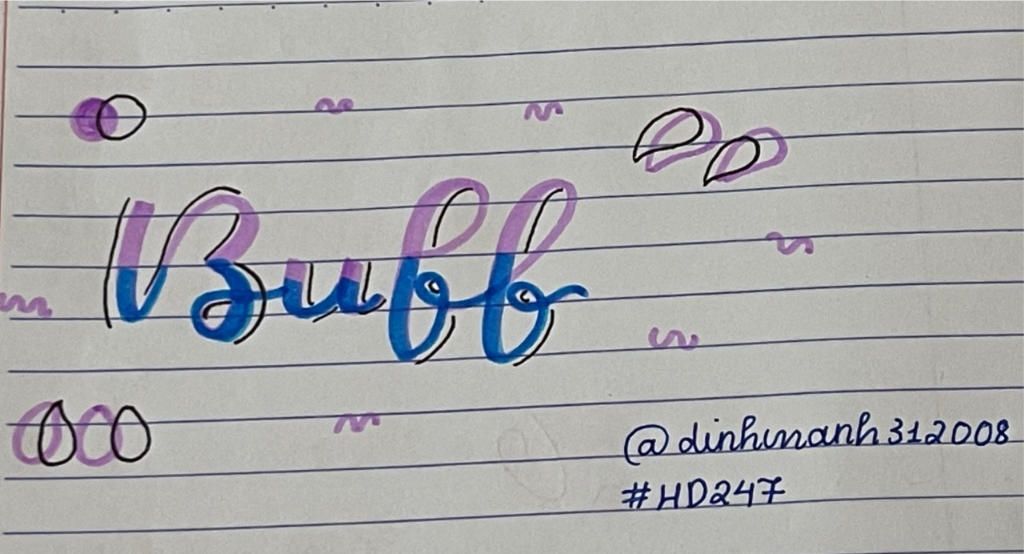 Buff
@dinhmanh312008
#HD247